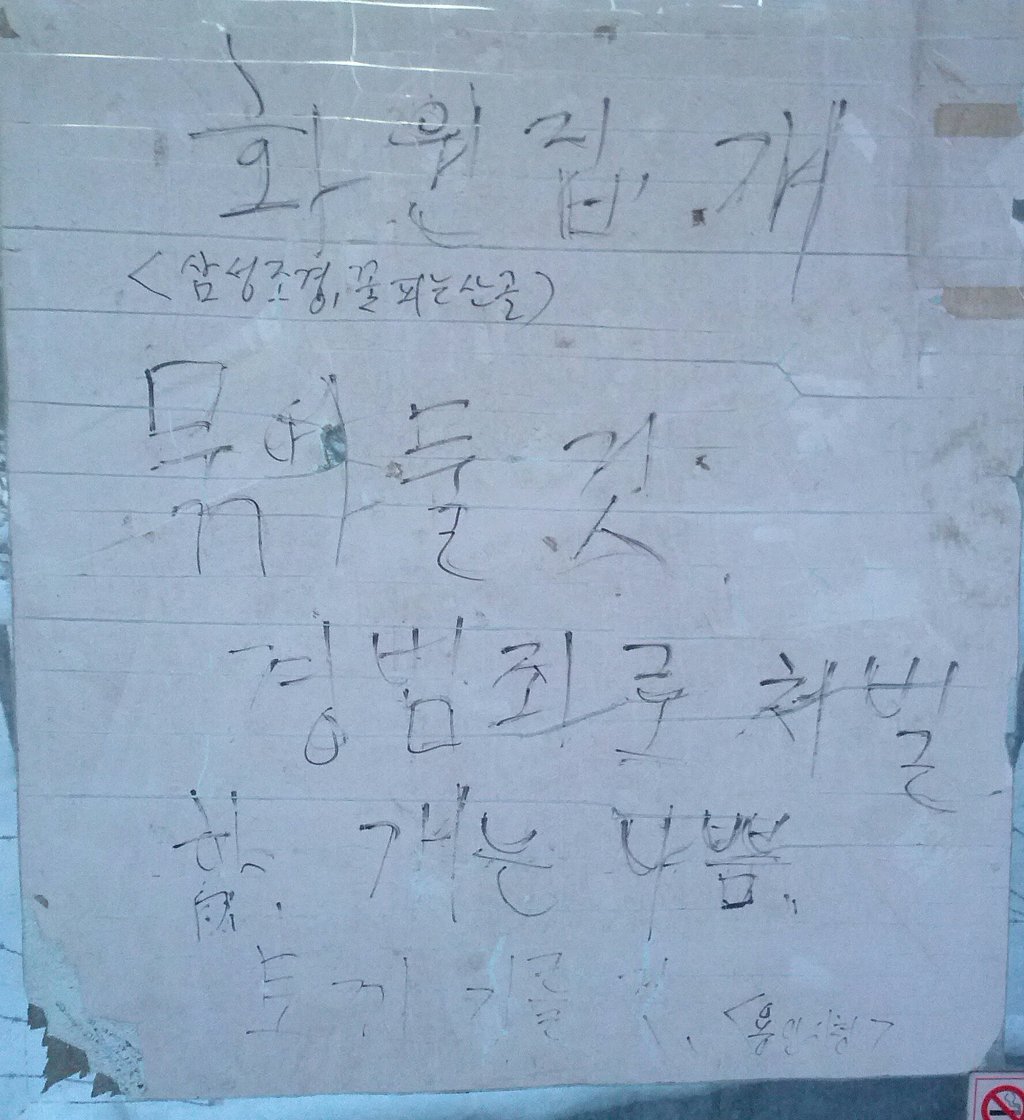 화원집.개
<삼성조경,꽃피는산골)
묶아둘것.
경범죄로 처벌
함. 개는 나쁨.
토끼 기를 것. <용인시청>